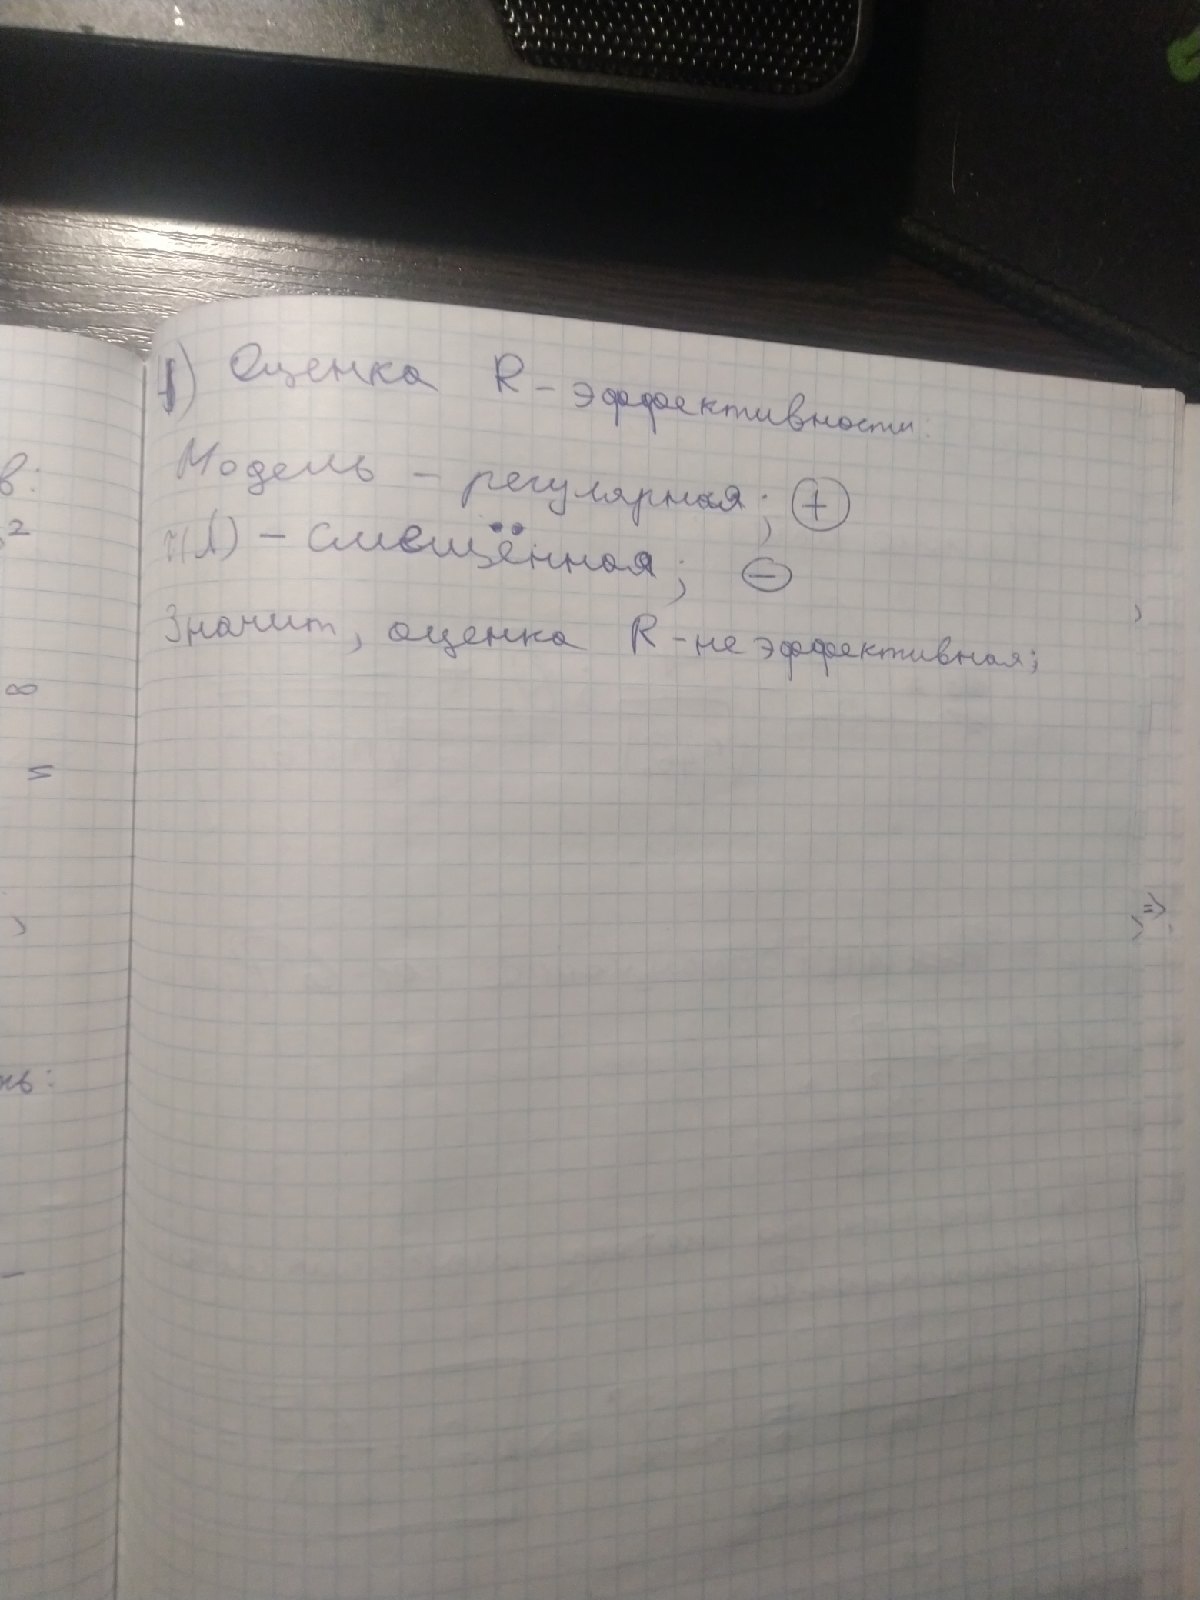 f) Оценка R-эффективности:
Модель - регулярная; (+)
τ(λ) - смещённая; (-)
Значит, оценка R-не эффективная;
в:
2
∞
=
,
нь:
-
,
=>
,